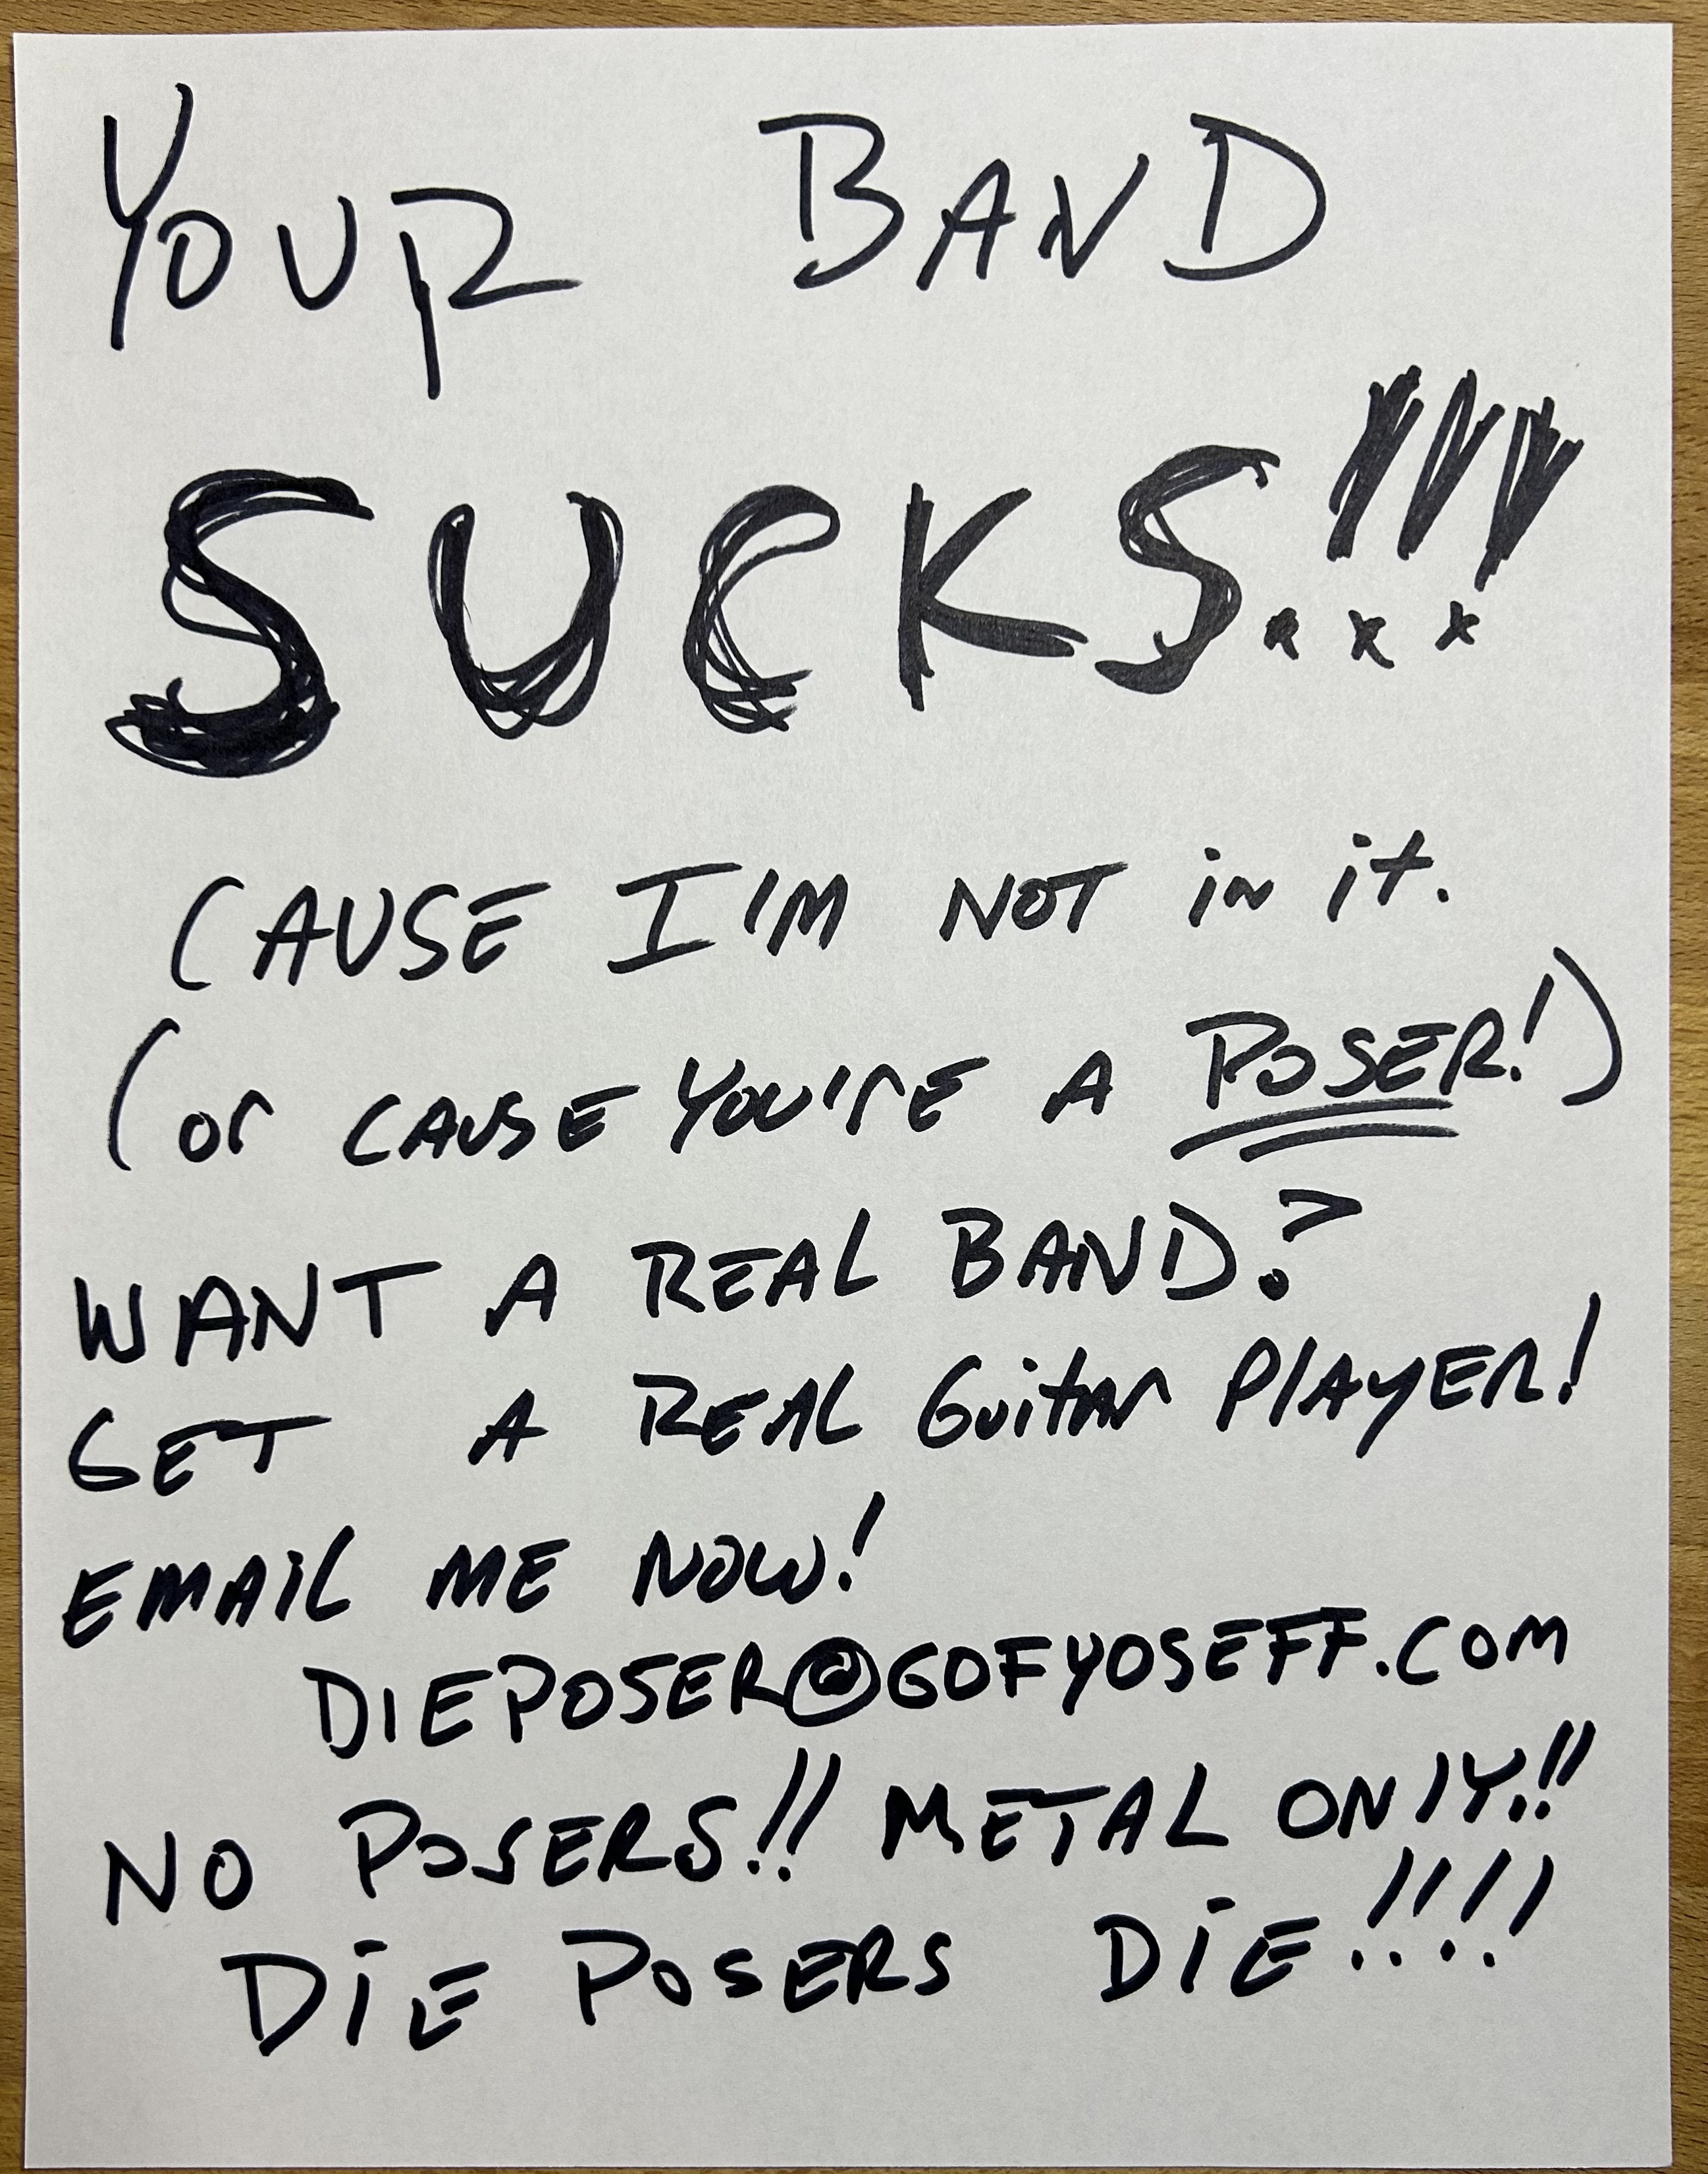 YOUR BAND
SUCKS!!!
CAUSE I'M NOT in it.
(or CAUSE YOU'rE A POSER!)
WANT A REAL BAND?
GET A REAL Guitar PlAyER!
EMAiL ME NOW!
DIEPOSER@GOFYOSEFF.COM
NO POSERS!! METAL ONlY!!
DiE POSERS DiE!!!!